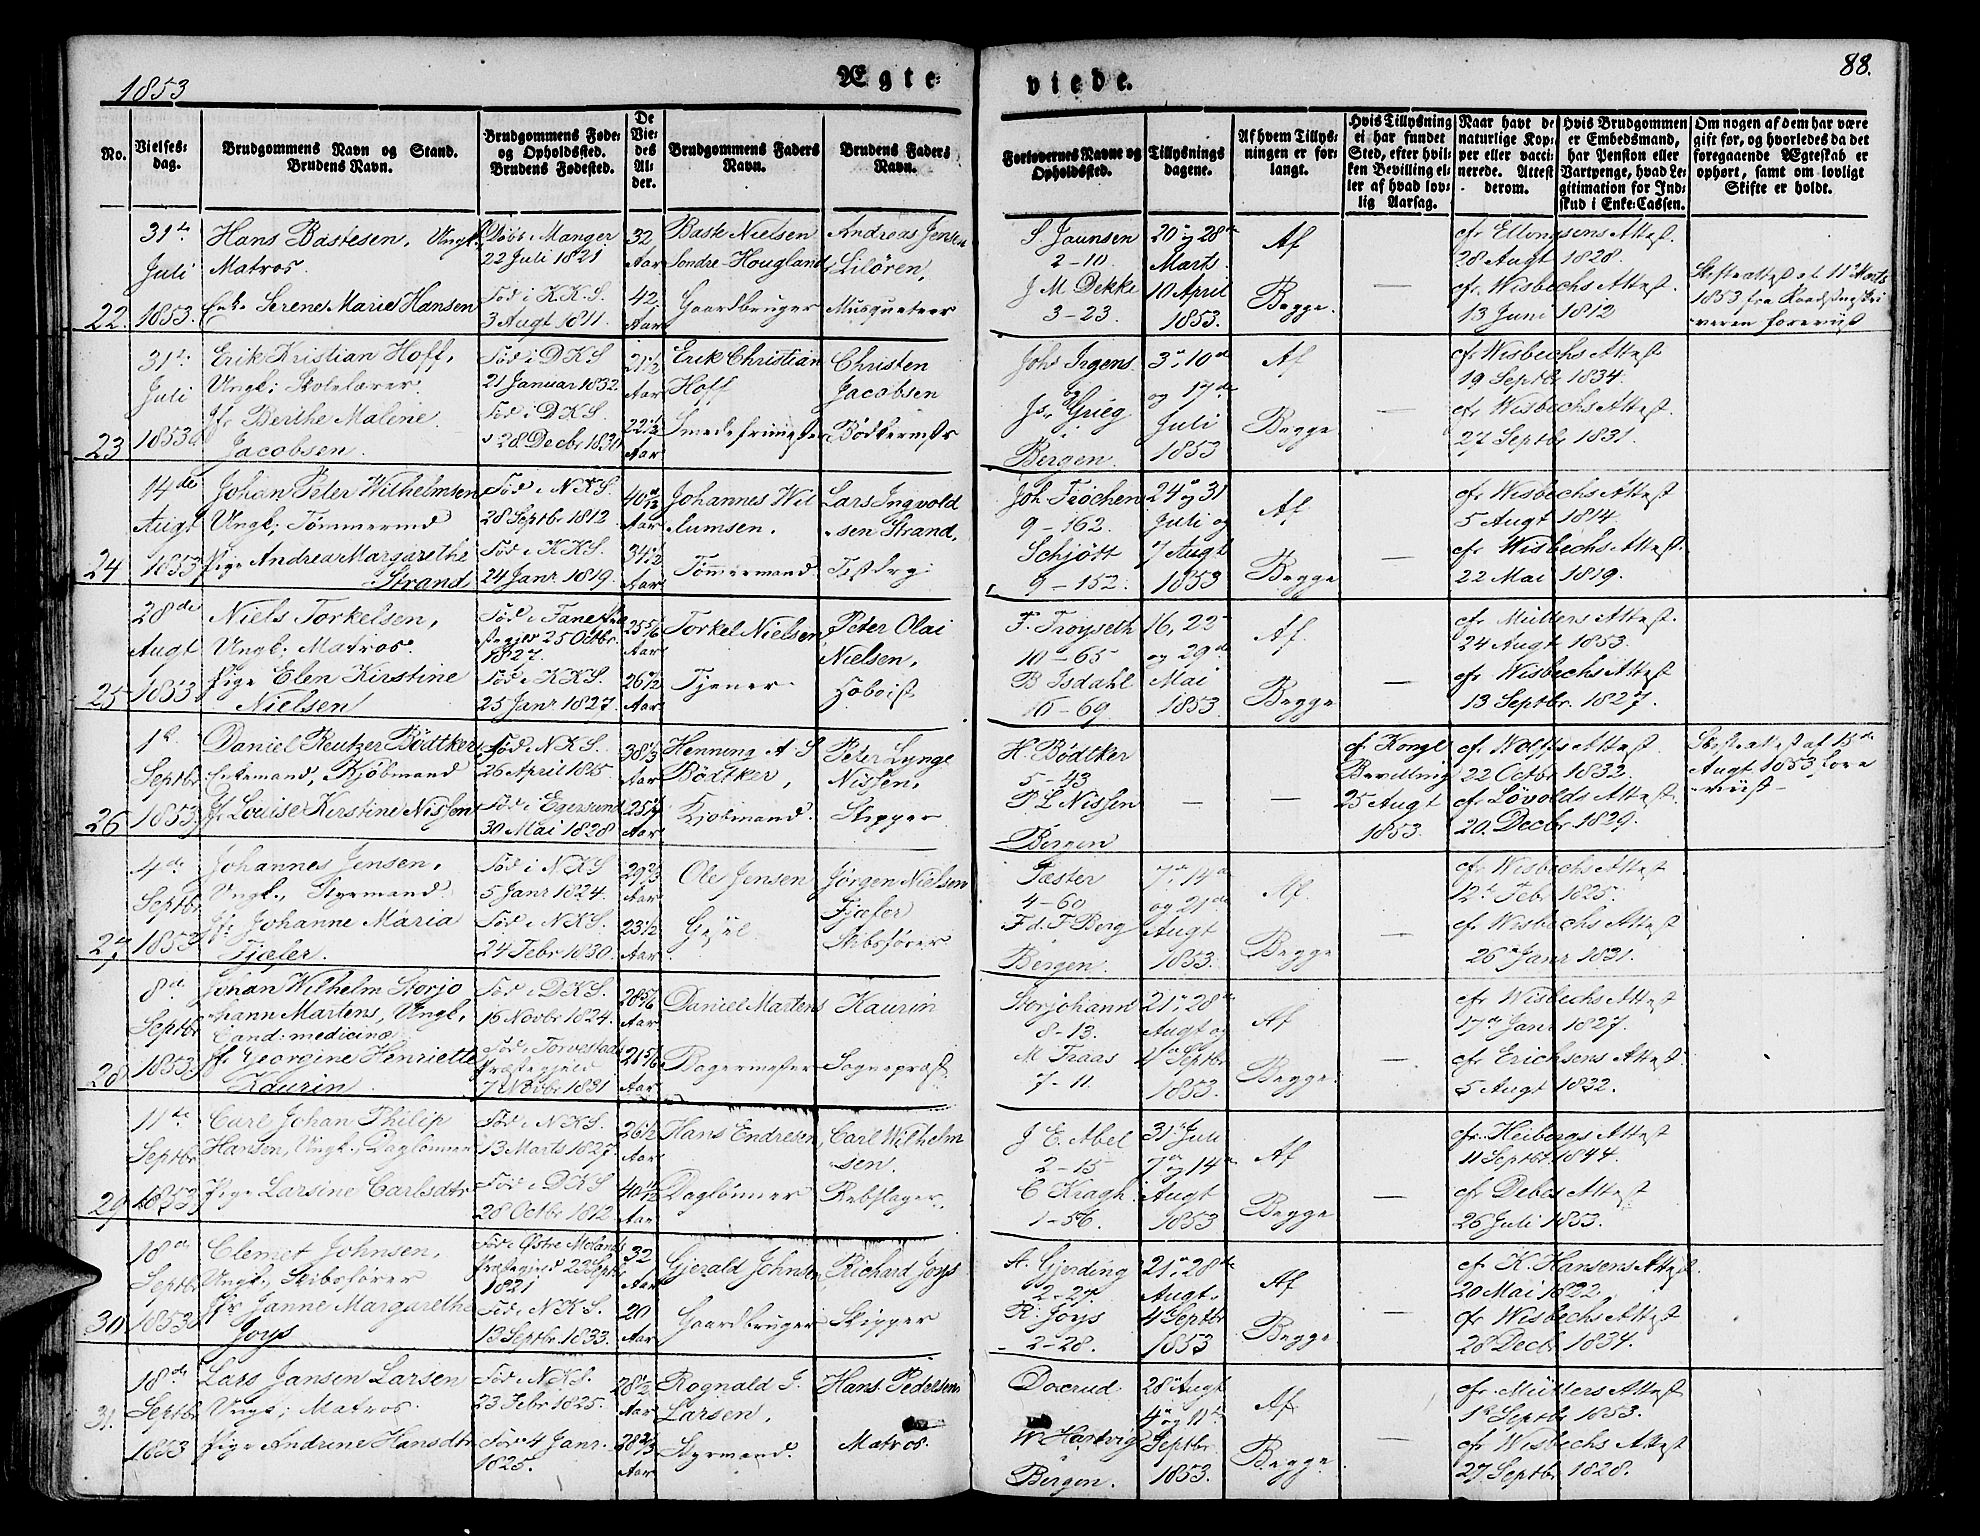 1853
Ægte
viede.
88.
No.
Vielses-
dag.
Brudgommens Navn og Stand.
Brudens Navn.
Brudgommens Føde-
og Opholdssted.
Brudens Fødested.
De
Vie-
des
Al-
der.
Brudgommens Faders
Navn.
Brudens Faders
Navn.
Forlovernes Navne og
Opholdssted.
Tillysnings
dagene.
Af hvem Tillys-
ningen er for-
langt.
Hvis Tillysning
ei har fundet
Sted, efter hvil-
ken Bevilling el-
ler af hvad lov-
lig Aarsag.
Naar havt de
naturlige Kop-
per eller vacci-
nerede. Attest
derom.
Hvis Brudgommen
er Embedsmand,
har Pension eller
Vartpenge, hvad Le-
gitimation for Ind-
skud i Enke-Cassen.
Om nogen af dem har være
gift før, og hvorledes da det
foregaaende Ægteskab er
ophørt, samt om lovligt
Skifte er holdt.
22.
31te
Juli
1853.
Hans Bastesen, Ungk.
Matros.
Enke Serene Marie Hansen
Døbt Manger
22 Juli 1821
Fød i K.K.S.
3 Augt 1811.
32
Aar
42
Aar
Bask Nielsen
Søndre-Hougland
Gaardbruger
Andreas Jensen
Liløren,
Musqueteer
S. Jaunsen
2-10.
J M Dekke
3-23.
20 og 28de
Marts
10 April
1853.
Af
Begge.
—
cfr Ellingsens Attest.
28 Augt 1828.
cfr. Wisbechs Attest.
13 Juni 1812
Skifteattest af 11te Marts
1853 fra
foreviist
23
31te
Juli
1853
Erik Kristian Hoff,
Ungk; Skolelærer.
Jfr Berthe Maline
Jacobsen.
Fød i D.K.S.
21 Januar 1832.
Fød i D.K.S.
28 Decbr 1830
21 1/2
Aar
22 1/2
Aar
Erik Christian
Hoff
Smedesvend
Christen
Jacobsen
Bødkermstr
Joh Irgens
og
Js. Grieg
i
Bergen.
3, 10de
og 17de
Juli
1853
Af
Begge
—
cfr Wisbechs Attest.
19 Septbr 1834.
cfr. Wisbechs Attest.
27 Septbr 1831.
24
14de
Augt
1853
Johan Peter Wilhelmsen
Ungk; Tømmermd
Pige Andrea Margarethe
Strand
Fød i N.K.S.
28 Septbr 1812
Fød i K.K.S.
24 Janr 1819.
40 11/12
Aar
34 1/2
Aar
Johannes Wil
lumsen.
Tømmermand
Lars Ingvold
sen Strand,
Joh Trochen
9-162.
Schjøtt
9-152.
24 og 31
Juli og
7 Augt
1853
Af
Begge
—
cfr. Wisbechs Attest
5 Augt 1814
cfr Wisbechs Attest.
22 Mai 1819.
25
28de
Augt
1853
Niels Torkelsen,
Ungk. Matros.
Pige Elen Kirstine
Nielsen
Fød i Fane Præ
stegjed 25 Octbr.
1827.
Fød i K.K.S.
25 Janr 1827.
25 5/6
Aar
26 1/2
Aar
Torkel Nielsen
Tjener
Peter Olai
Nielsen,
Hoboist
F. Frøyseth
10-65
B Isdahl
10-69.
16, 23
og 29de
Mai
1853
Af.
Begge
—
cfr. Müllers Attest
24 Augt 1853.
cfr Wisbechs Attest.
13 Septbr 1827.
26
1ste
Septbr
1853
Daniel Reutzer Bødtker
Enkemand, Kjøbmand
Jfr Louise Kirstine Nissen
Fød i N.K.S.
26 April 1815
Fød i Egersund
30 Mai 1828
38 1/3
Aar
25 1/4
Aar
Henning A S
Bødtker,
Kjøbmand.
Peter Lynge
Nissen.
Skipper
H. Bødtker
5-43
P L Nissen
Bergen
—
—
cf. Kongl
Bevilling
25 Augt
1853.
cfr. Wolffs Attest.
22 Octbr 1832.
cfr Løvolds Attest.
20. Decbr 1829.
Skifte Attest af 15de
Augt 1853. fore
viist -
27
4de
Septbr
1853
Johannes Jensen,
Ungk, Styrmand
Jfr Johanne Maria
Fjæfer.
Fød i N.K.S.
5 Janr 1824.
Fød i N.K.S.
24 Febr 1830.
29 2/3
Aar
23 1/2
Aar
Ole Jensen
Jørgen Nielsen
Fjæfer
Skibsfører.
Fæster
4-60
F. d. F Berg
Bergen.
7, 14de
og 21de
Augt
1853.
Af.
Begge
—
cfr. Wisbechs Attest
12te Febr 1825.
cfr Wisbechs Attest
26 Janr 1831.
28
8de
Septbr
1853
Johan Wilhelm Storjo
hann Martens, Ungk,
Cand: medicinæ
Jfr Georgine Henriette
Kaurin
Fød i D.K.S.
16 Novbr 1824.
Fød i Torvestads
Præstegjeld
7 Novbr 1831
28 5/6
Aar
21 5/6
Aar
Daniel Martens
Bagermester
Kaurin
Sognepræst
Storjohann
8-13.
M Traas
7-11.
21, 28de
Augt og
4de Septbr
1853.
Af
Begge.
—
cfr. Wisbechs Attest
17de Janr 1827.
cfr. Erichsens Attest.
5 Augt 1832.
29
11te
Septbr
1853
Carl Johan Philip
Hansen, Ungk; Daglønner
Pige Larsine Carlsdtr
Fød i N.K.S.
13 Marts 1827.
Fød i D.K.S
28 Octbr 1812.
26 1/2
Aar
40 11/12
Aar
Hans Endresen
Daglønner
Carl Wilhelm
sen.
Rebslager.
J E. Abel
2-15
C Kragh.
1-56.
31 Juli
7 og 14de
Augt
1853
Af
Begge
—
cfr. Heibergs Attest
11 Septbr 1844.
cfr Debes Attest
26 Juli 1853.
30
18de
Septbr
1853
Clemet Johnsen,
Ungk, Skibsfører
Jfr Janne Margarethe
Joys
Fød i Østre Molands
Præstegjeld 23 Septbr
1821
Fød i N.K.S.
13 Septbr 1833.
32
Aar
20
Aar
Gjerald Johnsen
Gaardbruger
Richard Joys
Skipper
A. Gjerding
2-27.
R. Joys
2-28.
21, 28de
Augt.
4 Septbr
1853
Af
Begge
—
cf K. Hansens Attest.
20 Mai 1822.
cfr Wisbechs Attest
28 Decbr 1834.
31.
18de
Septbr
1853
Lars Jansen Larsen
Ungk; Matros.
Pige Andrine Hansdtr
Fød i N.K.S.
23 Febr 1825.
Fød 4 Janr.
1825.
28 1/2
Aar
28 2/3
Aar
Rognald J.
Larsen,
Styrmand.
Hans Pedersen
Matros.
W Hartvig
Bergen.
28 Augt
4 og 11te
Septbr
1853.
Af
Begge
—
cfr. Müllers Attest
1ste Septbr 1853.
cfr Wisbechs Attest
27 Septbr 1828.